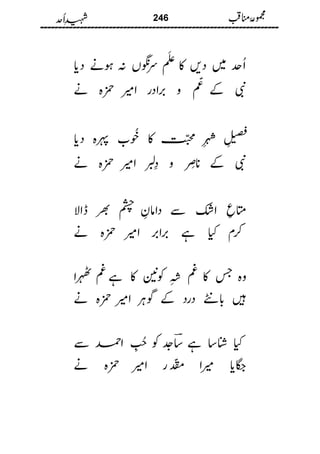 مجموعۂ مناقب 246 شہیدِ اُحد
اُحد میں دیں کا عَلَم سرنگوں نہ ہونے دیا
نبی کے عَم و برادر امیر حمزہ نے
فصیلِ شہرِ محبّت کا خُوب پہرہ دیا
نبی کے ناصِر و دلبر امیر حمزہ نے
متاعِ اشک سے دامانِ چشم بھر ڈالا
کرم کیا ہے برابر امیر حمزہ نے
وہ جس کا غم شہِ کونین کا ہے غم ٹھہرا
ہیں بانٹے درد کے گوہر امیر حمزہ نے
کیا شناسا ہے ساجد کو حُبِ احمد سے
جگایا میرا مقدّر امیر حمزہ نے